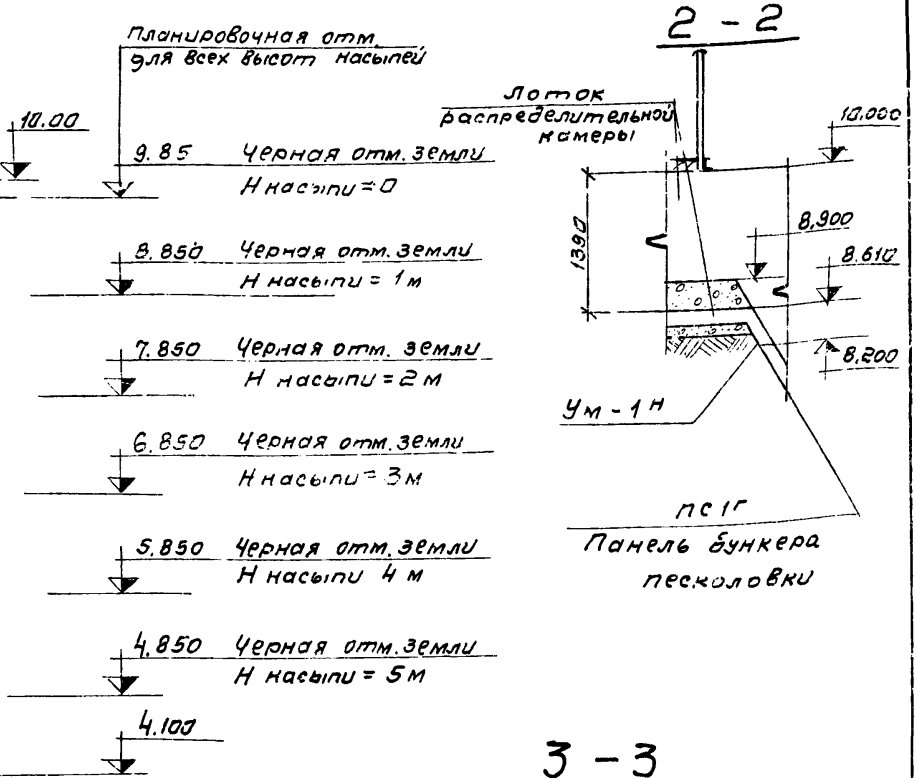 Планировочная отм.
для всех высот насыпей
10.00
9.85 Черная отм. земли
Н насыпи = 0
8.850 Черная отм. земли
Н насыпи = 1м
7.850 Черная отм. земли
Н насыпи = 2м
6.850 Черная отм. земли
Н насыпи = 3м
5.850 Черная отм. земли
Н насыпи 4 м
4.850 Черная отм. земли
Н насыпи = 5м
4.100
2 - 2
Лоток
распределительной
камеры
10.000
1390
8,900
8.610
8,200
Ум - 1 н
ПС 1г
Панель бункера
песколовки
3 - 3